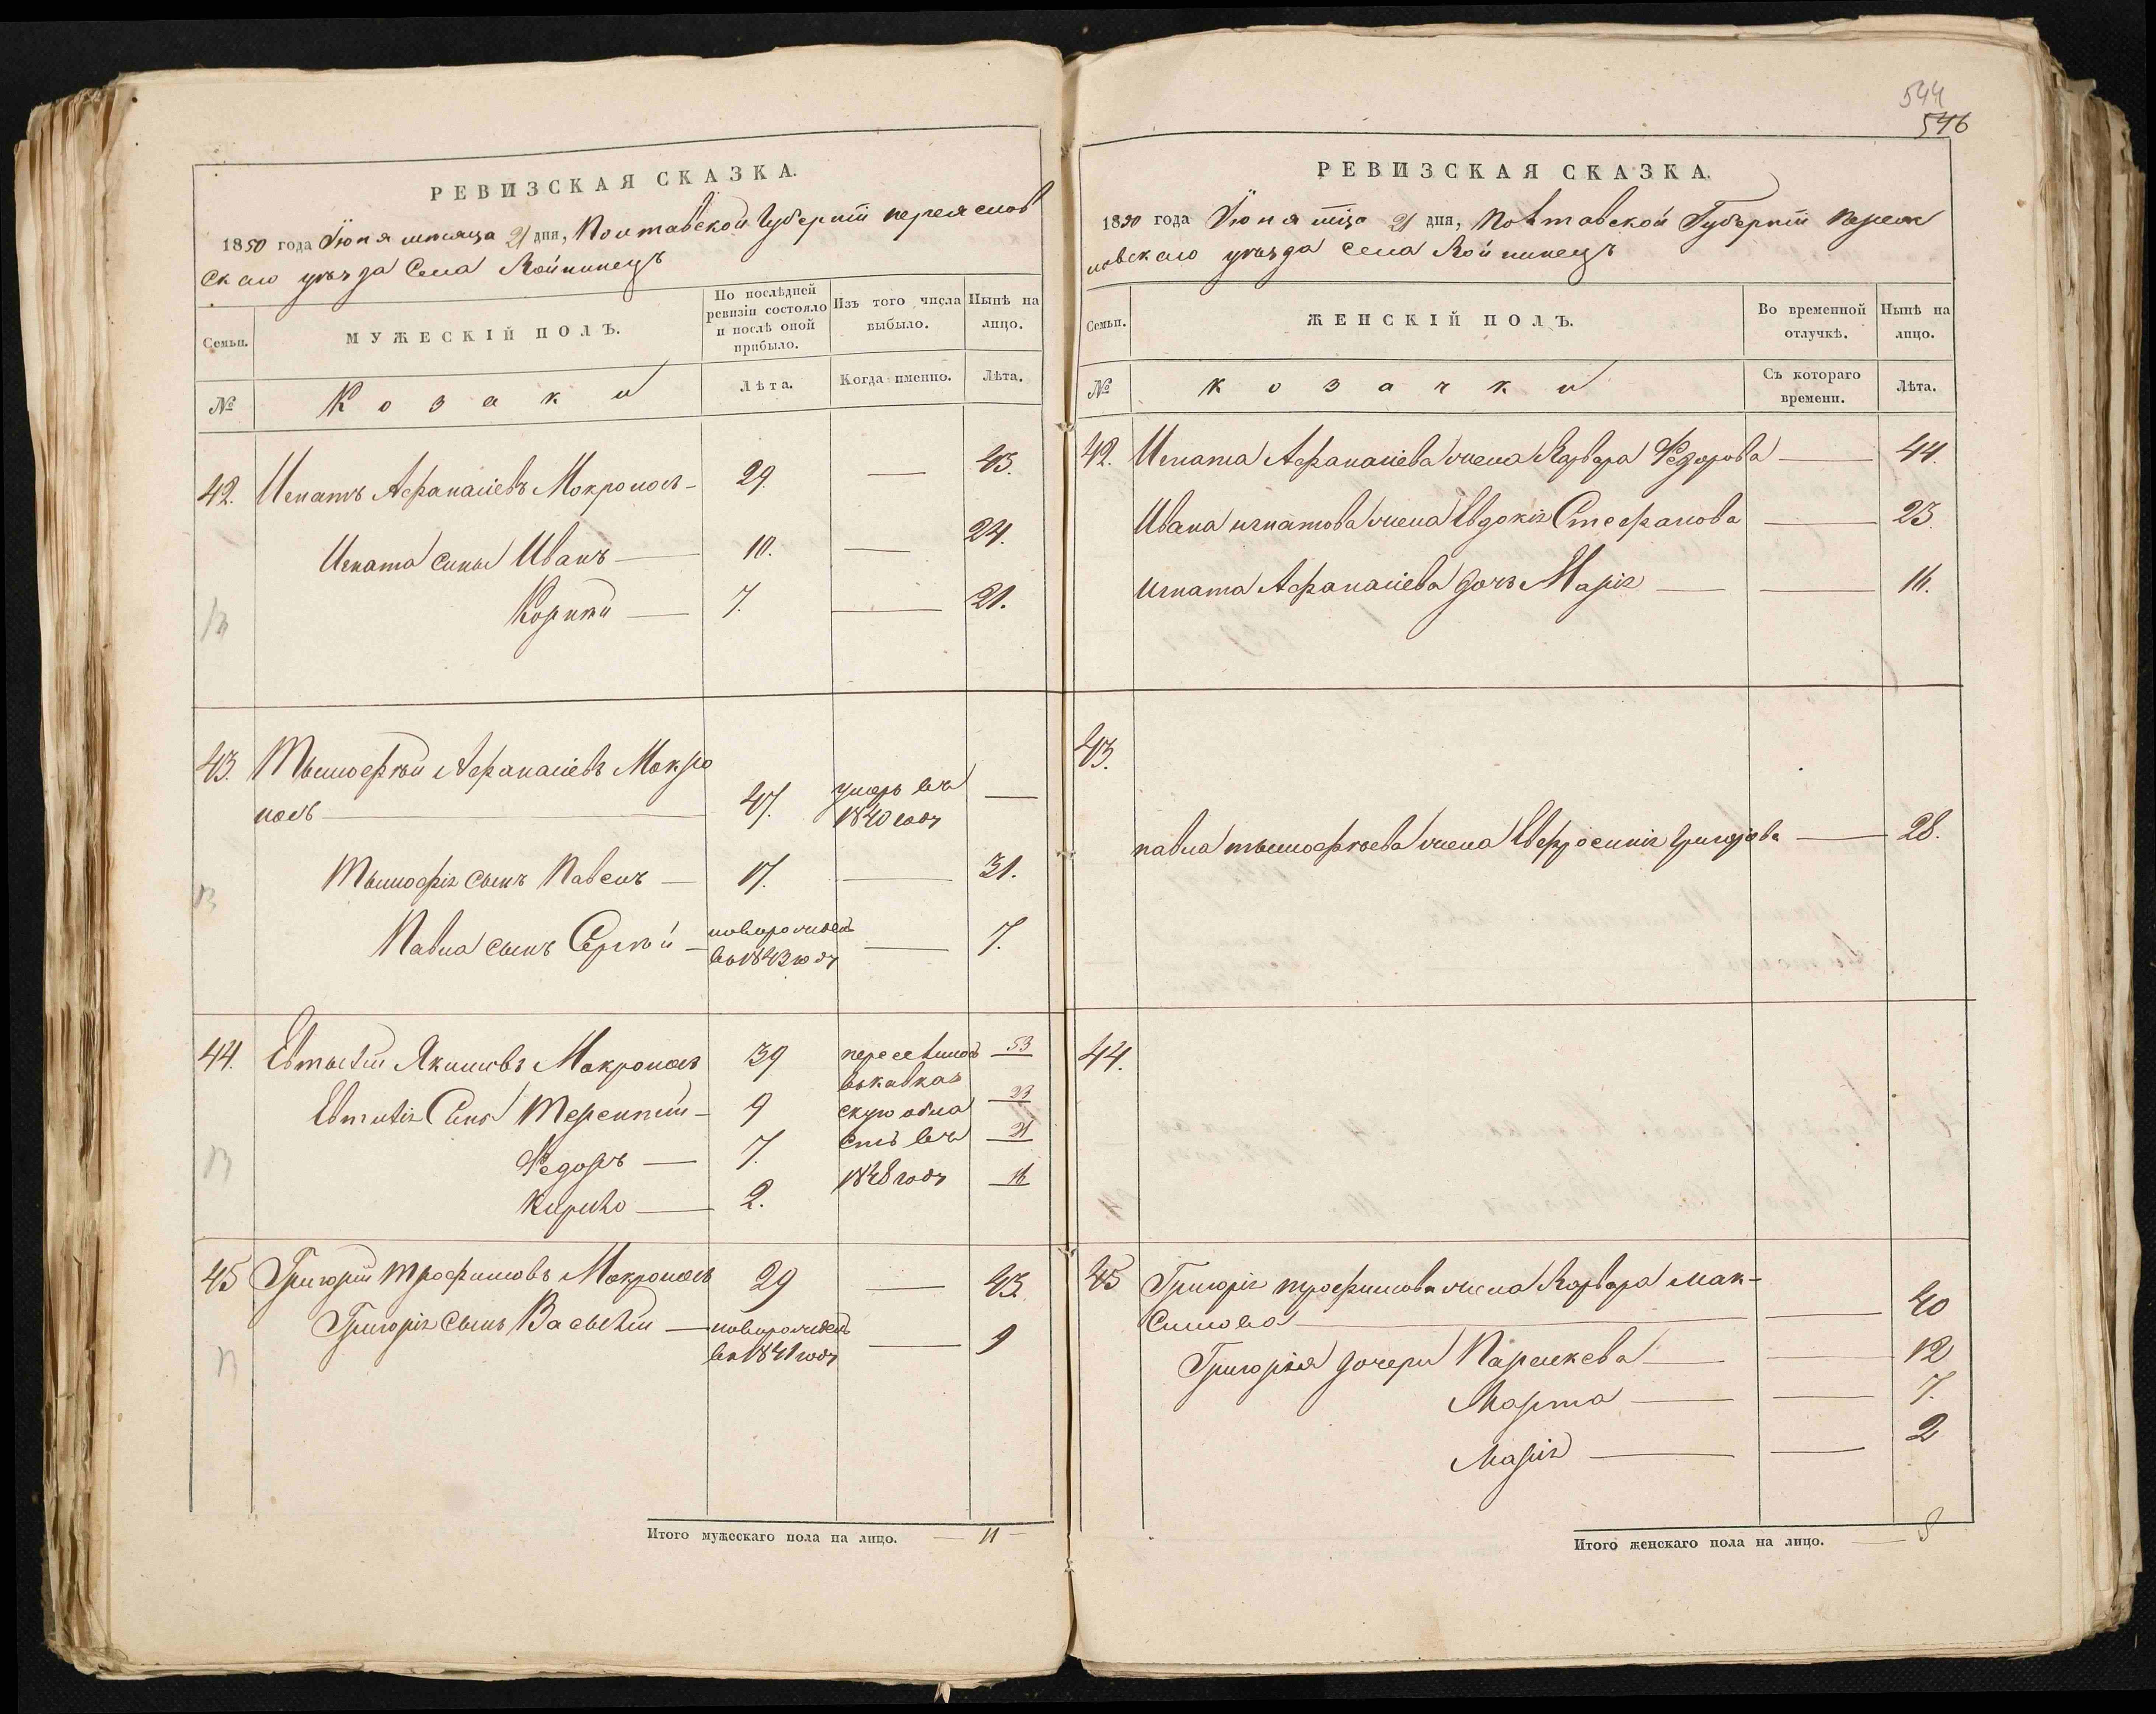 544
546
РЕВИЗСКАЯ СКАЗКА.
1850 года Июня месяца 21 дня, Полтавской Губернїи переяслов
скаго уѣзда Села Войтинецъ
Семьи.
МУЖЕСКІЙ ПОЛЪ.
По послѣдней ревизіи состояло и послѣ оной прибыло.
Изъ того числа выбыло.
Нынѣ на лицо.
№
Козаки
Лѣта.
Когда именно.
Лѣта.
42. Игнатъ Афанасіевъ Мокроносъ 29. — 43.
Игната сины Иванъ — 10. — 24.
7. — 21.
43. Тымофѣй Афанасіевъ Мокро
носъ — 47. умеръ въ 1840 годѣ —
Тымофія сынъ Павелъ — 17. — 31.
Павла сынъ Сергѣй — новорожденъ въ 1843 годѣ — 7.
44. Евтыхій Якимовъ Мокроносъ 39 переселился 53
въ кавказ
Евтихія Сины Терентій — 9 скую обла 23
Федоръ — 7. сть въ 21
Кирило — 2. 1848 годѣ 16
45 Григорій Трофимовъ Мокроносъ 29 — 43.
Григорія сынъ Василій — новорожденъ въ 1841 годѣ — 9
Итого мужескаго пола на лицо. — 11 —
РЕВИЗСКАЯ СКАЗКА.
1850 года Июня мѣца 21 дня, Полтавской Губернїи Переяс
ловскаго уѣзда села Войтинецъ
Семьи.
ЖЕНСКІЙ ПОЛЪ.
Во временной отлучкѣ.
Нынѣ на лицо.
№
козачки
Съ котораго времени.
Лѣта.
42. Игната Афанасіева жена Варвара Федорова — 44.
Ивана игнатова жена Евдокія Стефанова — 23.
игната Афанасіева дочь Марія — — 16.
43.
павла тымофѣева жена Евфросинія григорова — 28.
44.
45 Григорія трофимова жена Варвара мак-
симова — — 40
Григорія дочери Параскева — — 12
Марта — — 7.
Марія — — 2
Итого женскаго пола на лицо. — 8